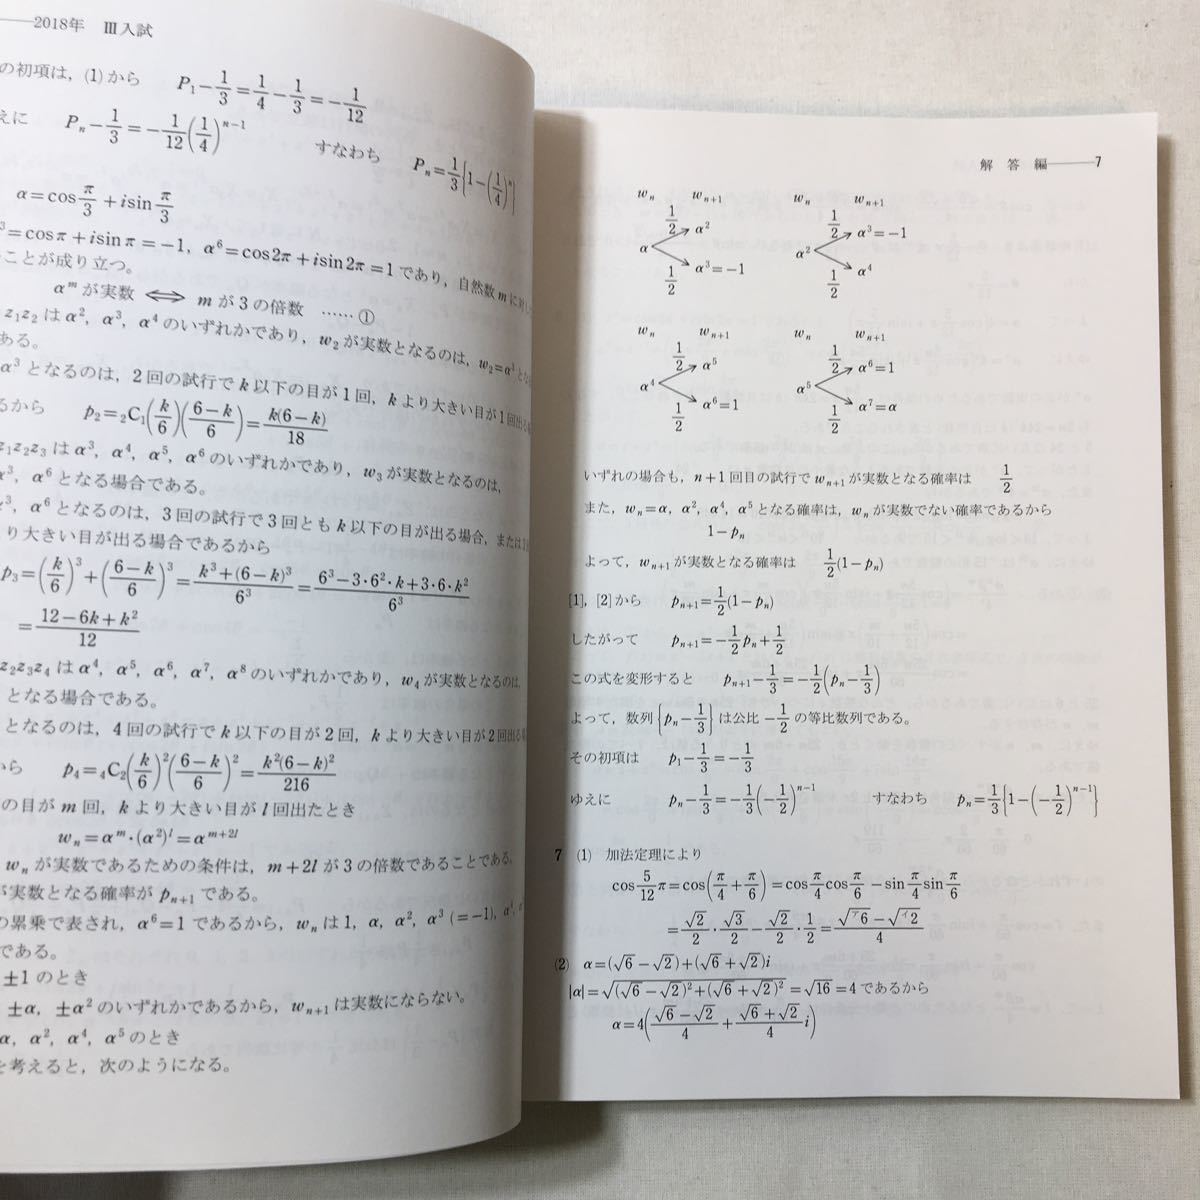 2018年 Ⅲ入試
の初項は，(1)から P₁−1/3=1/4−1/3=−1/12
えに Pₙ−1/3=−1/12(1/4)ⁿ⁻¹ すなわち Pₙ=1/3{1−(1/4)ⁿ}
α=cosπ/3+isinπ/3
³=cosπ+isinπ=−1，α⁶=cos2π+isin2π=1であり，自然数mに対し
ことが成り立つ。
αᵐが実数 ⟺ mが3の倍数 ……①
z₁z₂はα²，α³，α⁴のいずれかであり，w₂が実数となるのは，w₂=α³と
ある。
α³となるのは，2回の試行でk以下の目が1回，kより大きい目が1回出る
るから p₂=₂C₁(k/6)((6−k)/6)=k(6−k)/18
z₁z₂z₃はα³，α⁴，α⁵，α⁶のいずれかであり，w₃が実数となるのは，
α³，α⁶となる場合である。
³，α⁶となるのは，3回の試行で3回ともk以下の目が場合，または
より大きい目が出る場合であるから
p₃=(k/6)³+((6−k)/6)³=(k³+(6−k)³)/6³=(6³−3·6²·k+3·6·k²)/6³
=(12−6k+k²)/12
z₂z₃z₄はα⁴，α⁵，α⁶，α⁷，α⁸のいずれかであり，w₄が実数となるのは，
となる場合である。
となるのは，4回の試行でk以下の目が2回，kより大きい目が2回出る
から p₄=₄C₂(k/6)²((6−k)/6)²=k²(6−k)²/216
の目がm回，kより大きい目がl回出たとき
wₙ=αᵐ·(α²)ˡ=αᵐ⁺²ˡ
wₙが実数であるための条件は，m+2lが3の倍数であることである。
が実数となる確率がpₙ₊₁である。
の累乗で表され，α⁶=1であるから，wₙは1，α，α²，α³(=−1)，α⁴，α
である。
±1のとき
±α，±α²のいずれかであるから，wₙ₊₁は実数にならない。
α，α²，α⁴，α⁵のとき
を考えると，次のようになる。
解答編 7
wₙ wₙ₊₁ wₙ wₙ₊₁
1/2 α² 1/2 α³=−1
α α²
1/2 α³=−1 1/2 α⁴
wₙ wₙ₊₁ wₙ wₙ₊₁
1/2 α⁵ 1/2 α⁶=1
α⁴ α⁵
1/2 α⁶=1 1/2 α⁷=α
いずれの場合も，n+1回目の試行でwₙ₊₁が実数となる確率は 1/2
また，wₙ=α，α²，α⁴，α⁵となる確率は，wₙが実数でない確率であるから
1−pₙ
よって，wₙ₊₁が実数となる確率は 1/2(1−pₙ)
[1]，[2]から pₙ₊₁=1/2(1−pₙ)
したがって pₙ₊₁=−1/2pₙ+1/2
この式を変形すると pₙ₊₁−1/3=−1/2(pₙ−1/3)
よって，数列{pₙ−1/3}は公比−1/2の等比数列である。
その初項は p₁−1/3=−1/3
ゆえに pₙ−1/3=−1/3(−1/2)ⁿ⁻¹ すなわち pₙ=1/3{1−(−1/2)ⁿ⁻¹}
7 (1) 加法定理により
cos5/12π=cos(π/4+π/6)=cosπ/4cosπ/6−sinπ/4sinπ/6
=√2/2·√3/2−√2/2·1/2=(√ア6−√イ2)/4
(2) α=(√6−√2)+(√6+√2)i
|α|=√((√6−√2)²+(√6+√2)²)=√16=4であるから
α=4((√6−√2)/4+(√6+√2)/4 i)